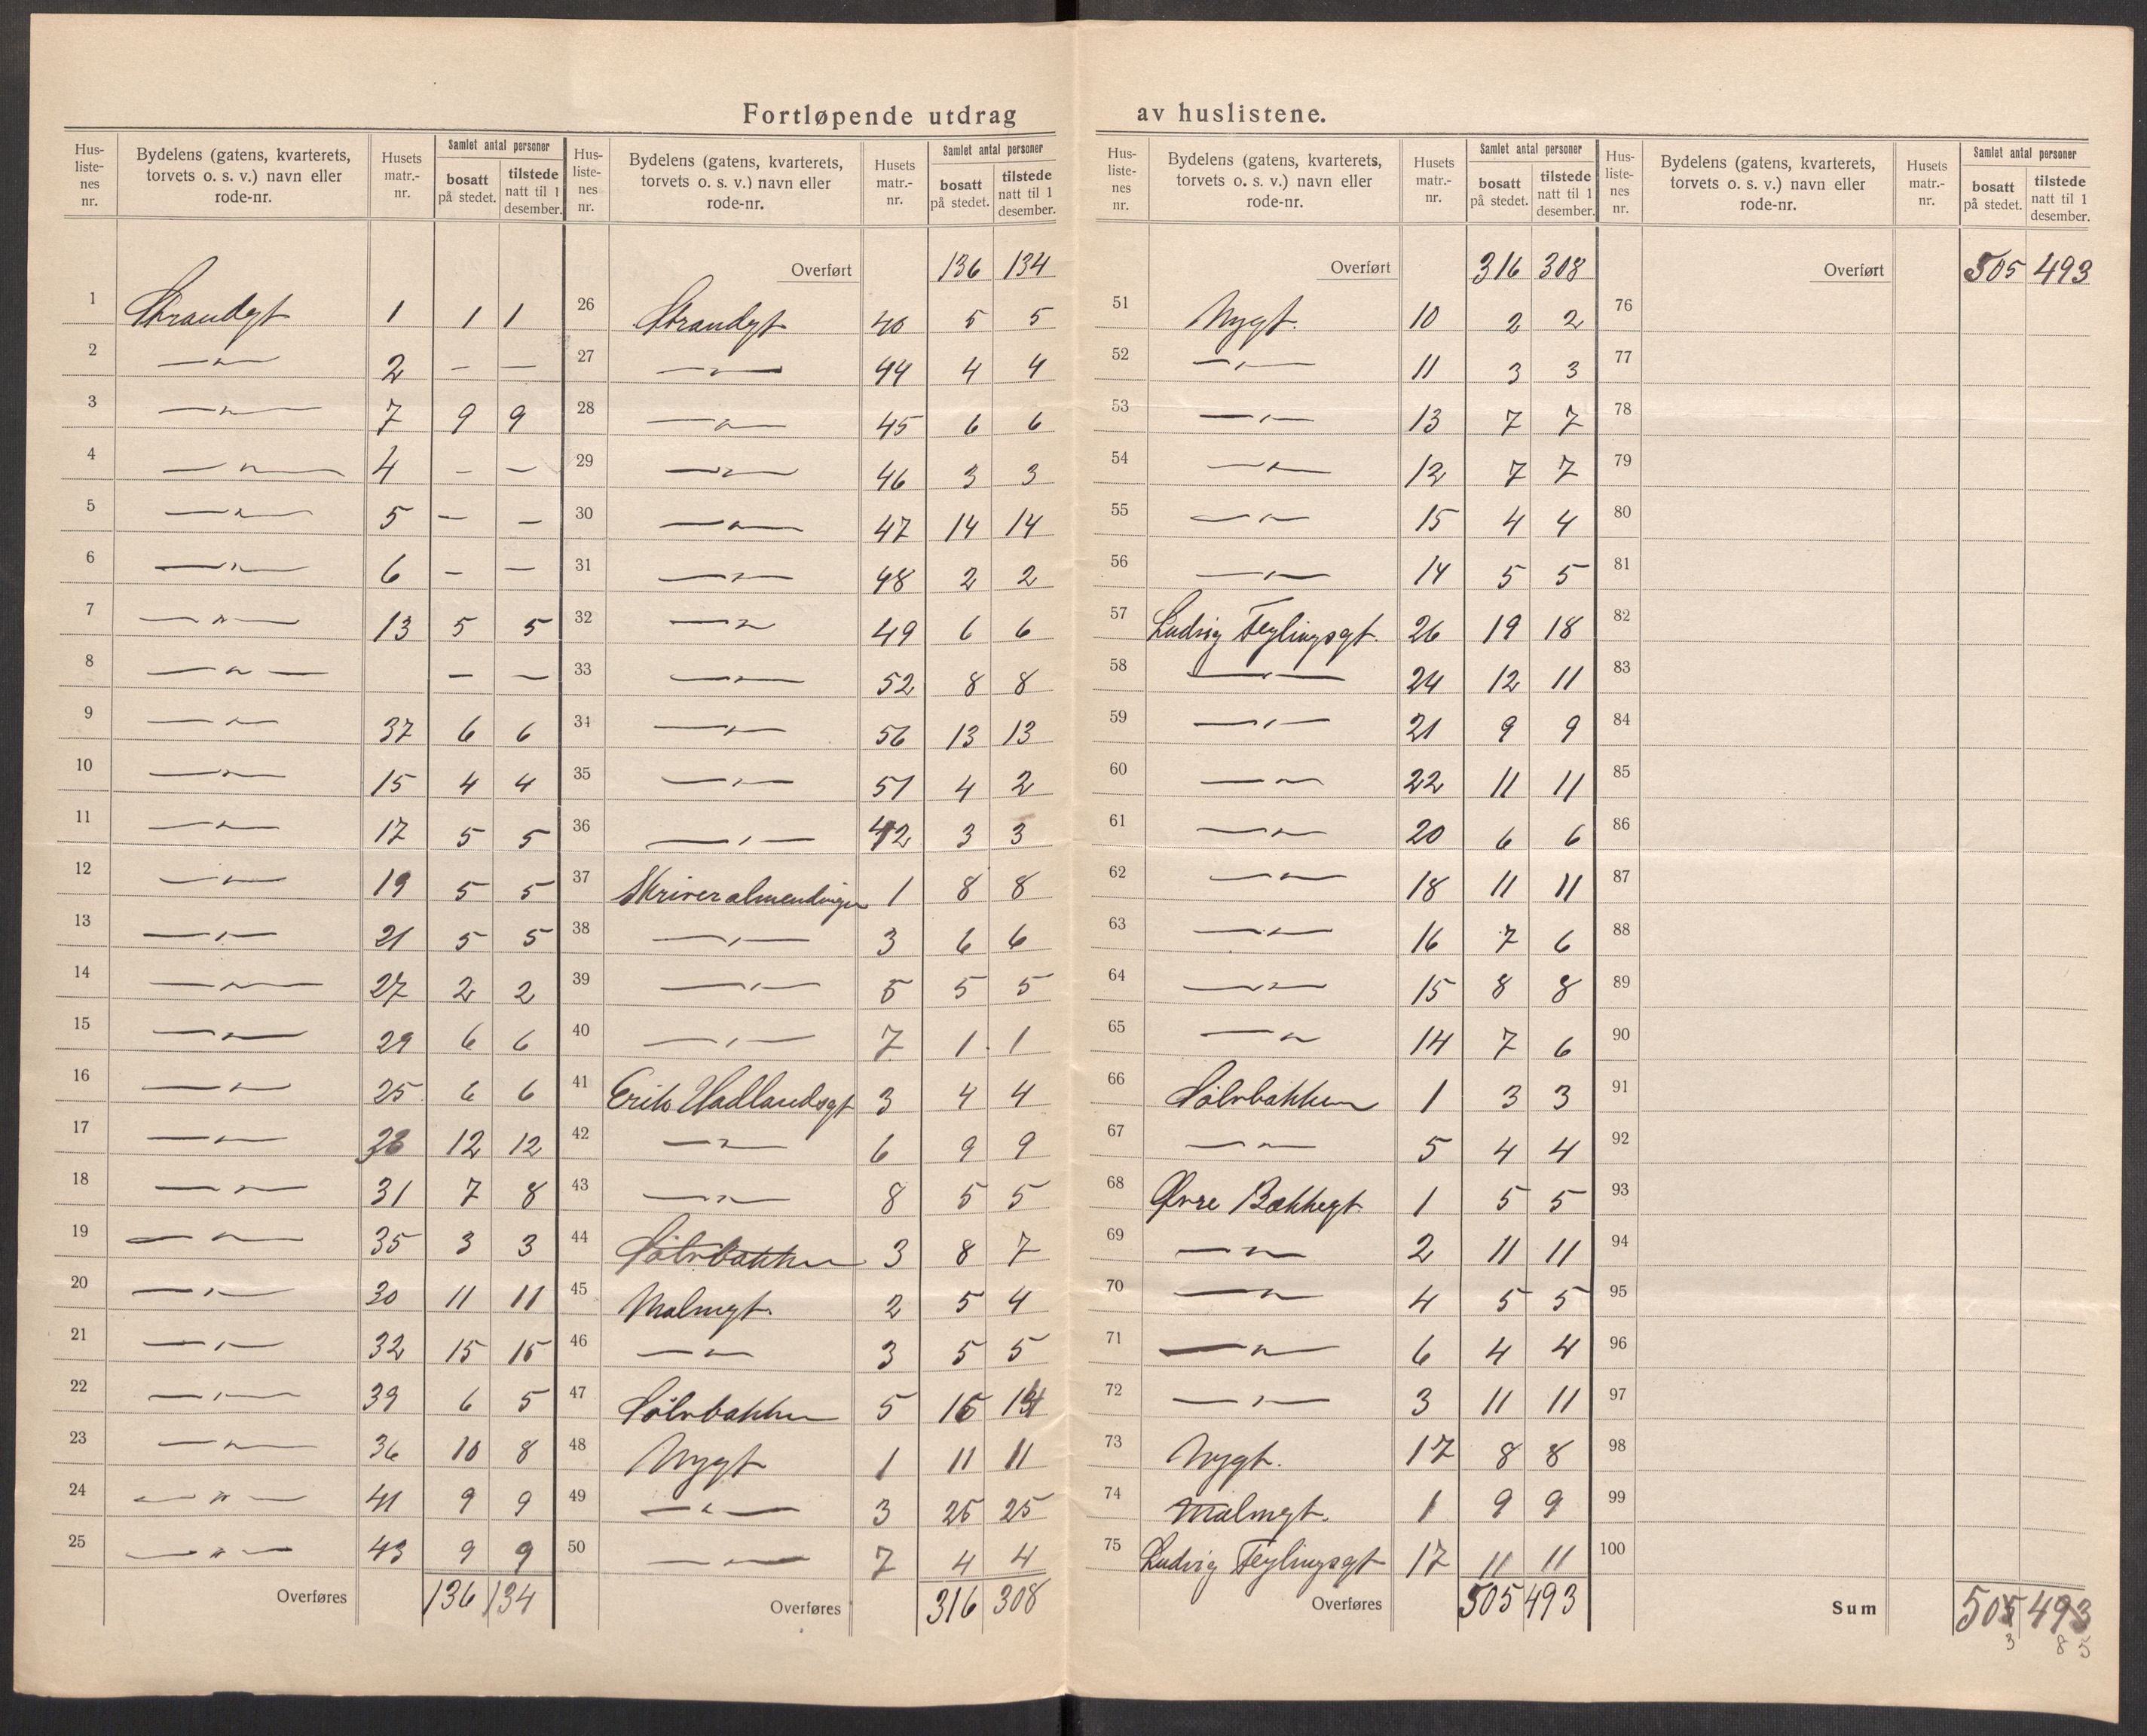 Fortløpende utdrag av huslistene.
Hus-liste-nes nr. | Bydelens (gatens, kvarterets, torvets o. s. v.) navn eller rode-nr. | Husets matr.-nr. | Samlet antal personer | bosatt på stedet. | tilstede natt til 1 desember.
1 Strandgt 1 1 1
2 —"— 2 — —
3 —"— 7 9 9
4 —"— 4 — —
5 —"— 5 — —
6 —"— 6 — —
7 —"— 13 5 5
8 —"— — —
9 —"— 37 6 6
10 —"— 15 4 4
11 —"— 17 5 5
12 —"— 19 5 5
13 —"— 21 5 5
14 —"— 27 2 2
15 —"— 29 6 6
16 —"— 25 6 6
17 —"— 12 12
18 —"— 31 7 8
19 —"— 35 3 3
20 —"— 30 11 11
21 —"— 32 15 15
22 —"— 39 6 5
23 —"— 36 10 8
24 —"— 41 9 9
25 —"— 43 9 9
Overføres 136 134
Hus-liste-nes nr. | Bydelens (gatens, kvarterets, torvets o. s. v.) navn eller rode-nr. | Husets matr.-nr. | Samlet antal personer | bosatt på stedet. | tilstede natt til 1 desember.
Overført 136 134
26 Strandgt 40 5 5
27 —"— 44 4 4
28 —"— 45 6 6
29 —"— 46 3 3
30 —"— 47 14 14
31 —"— 48 2 2
32 —"— 49 6 6
33 —"— 52 8 8
34 —"— 56 13 13
35 —"— 51 4 2
36 —"— 42 3 3
37 Skriveralmendingen 1 8 8
38 —"— 3 6 6
39 —"— 5 5 5
40 —"— 7 1 1
41 Erik Hadlandsgt 3 4 4
42 —"— 6 9 9
43 —"— 8 5 5
44 Sølvbakken 3 8 7
45 Malmgt. 2 5 4
46 —"— 3 5 5
47 Sølvbakken 5 16 14
48 Nygt 1 11 11
49 —"— 3 25 25
50 —"— 7 4 4
Overføres 316 308
Hus-liste-nes nr. | Bydelens (gatens, kvarterets, torvets o. s. v.) navn eller rode-nr. | Husets matr.-nr. | Samlet antal personer | bosatt på stedet. | tilstede natt til 1 desember.
Overført 316 308
51 Nygt. 10 2 2
52 —"— 11 3 3
53 —"— 13 7 7
54 —"— 12 7 7
55 —"— 15 4 4
56 —"— 14 5 5
57 Ludvig Eeglingsgt. 26 19 18
58 —"— 24 12 11
59 —"— 21 9 9
60 —"— 22 11 11
61 —"— 20 6 6
62 —"— 18 11 11
63 —"— 16 7 6
64 —"— 15 8 8
65 —"— 14 7 6
66 Sølvbakken 1 3 3
67 —"— 5 4 4
68 Øvre Bakkegt. 1 5 5
69 —"— 2 11 11
70 —"— 4 5 5
71 —"— 6 4 4
72 —"— 3 11 11
73 Nygt. 17 8 8
74 Malmgt. 1 9 9
75 Ludvig Eeglingsgt 17 11 11
Overføres 505 493
Hus-liste-nes nr. | Bydelens (gatens, kvarterets, torvets o. s. v.) navn eller rode-nr. | Husets matr.-nr. | Samlet antal personer | bosatt på stedet. | tilstede natt til 1 desember.
Overført 505 493
76
77
78
79
80
81
82
83
84
85
86
87
88
89
90
91
92
93
94
95
96
97
98
99
100
Sum 505 493
3 8 5